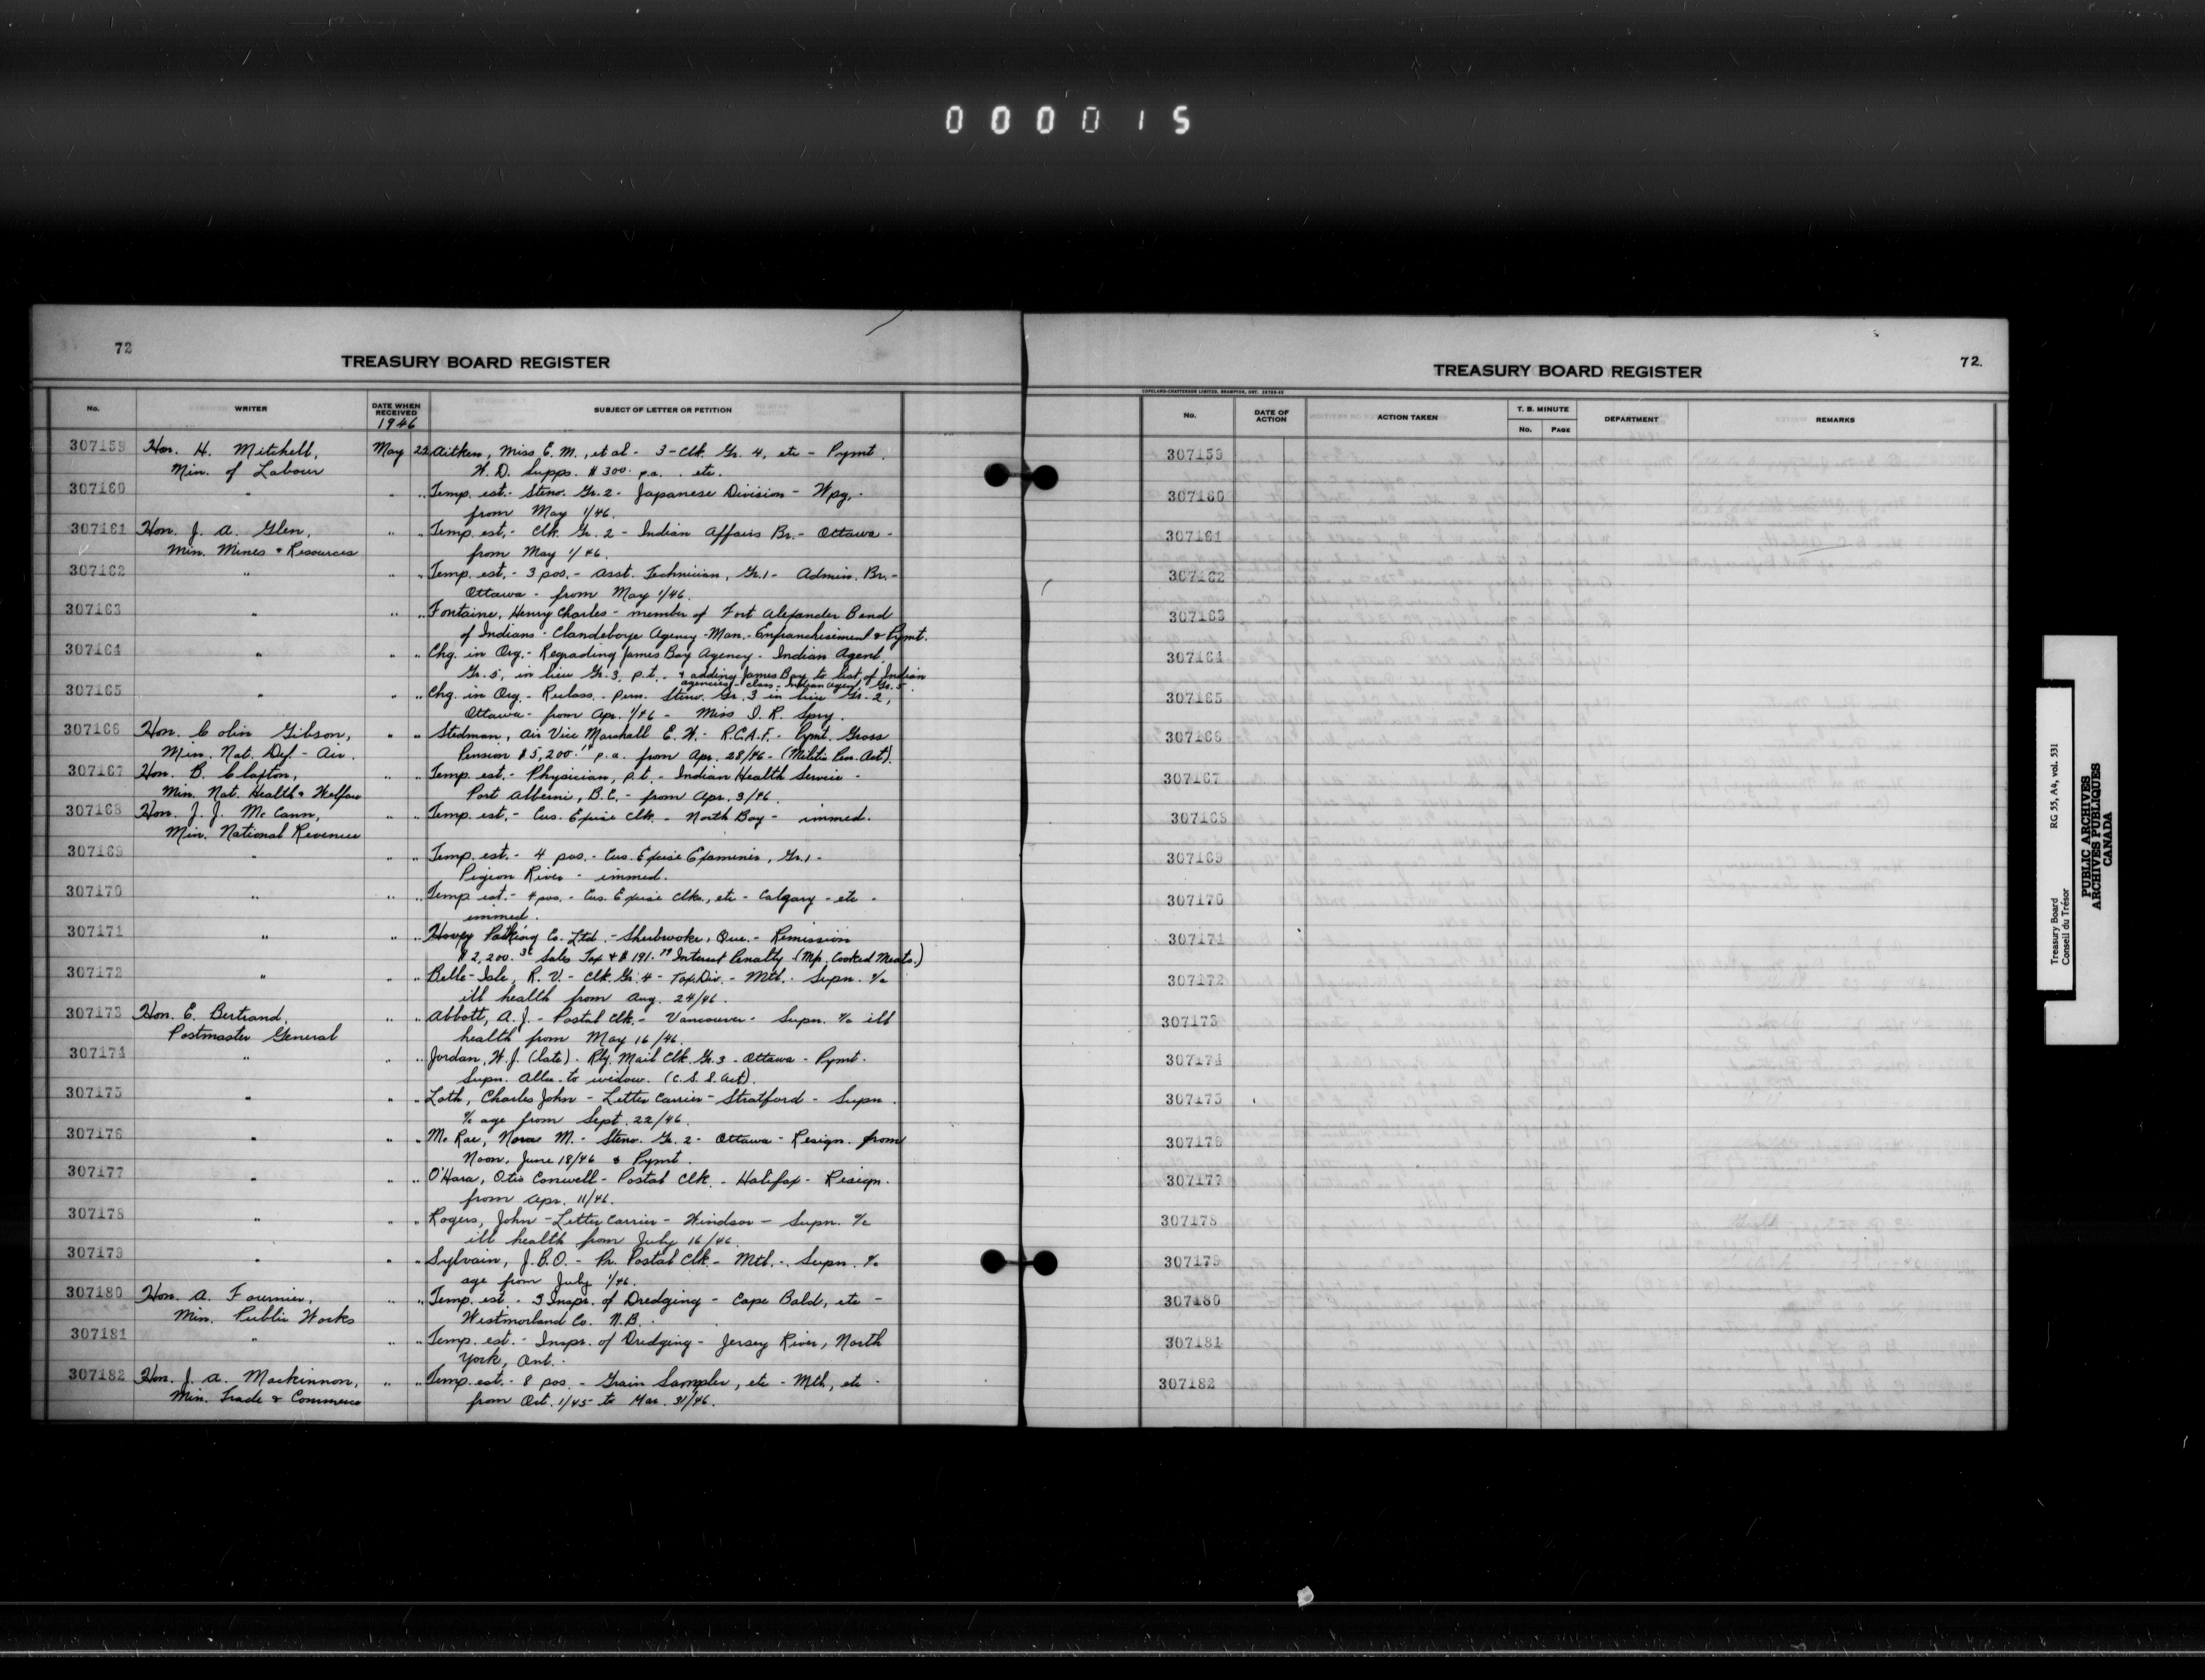 000015
72
TREASURY BOARD REGISTER
No. WRITER DATE WHEN RECEIVED SUBJECT OF LETTER OR PETITION
1946
307159 Hon. H. Mitchell, May 22 Aitken, Miss E. M., et al - 3 - Clk. Gr. 4, etc - Pymt.
Min. of Labour W. D. Supps. $300. p.a. . etc.
307160 " " " Temp. est. - Steno. Gr. 2 - Japanese Division - Wpg. -
from May 1/46.
307161 Hon. J. A. Glen, " " Temp. est. - Clk. Gr. 2 - Indian Affairs Br. - Ottawa -
Min. Mines & Resources from May 1/46.
307162 " " " Temp. est. - 3 pos. - Asst. Technician, Gr. 1 - Admin. Br. -
Ottawa - from May 1/46.
307163 " " " Fontaine, Henry Charles - member of Fort Alexander Band
of Indians - Clandeboye Agency - Man. - Enfranchisement & Pymt.
307164 " " " Chg. in Org. - Regrading James Bay Agency - Indian Agent.
Gr. 5, in lieu Gr. 3, p.t. - & adding James Bay to list of Indian
agencies - class - Indian Agent, Gr. 5.
307165 " " " Chg. in Org. - Reclass. - perm. Steno. Gr. 3 in lieu Gr. 2,
Ottawa - from Apr. 1/46 - Miss I. R. Spry.
307166 Hon. Colin Gibson, " " Stedman, Air Vice Marshall E. W. - R.C.A.F. - Pymt. Gross
Min. Nat. Def. - Air. Pension $5,200. p.a. from Apr. 28/46 - (Militia Pen. Act).
307167 Hon. B. Claxton, " " Temp. est. - Physician, p.t. - Indian Health Service -
Min. Nat. Health & Welfare Port Alberni, B.C. - from Apr. 3/46.
307168 Hon. J. J. McCann, " " Temp. est. - Cus. Excise Clk. - North Bay - immed.
Min. National Revenue
307169 " " " Temp. est. - 4 pos. - Cus. Excise Examiner, Gr. 1 -
Pigeon River - immed.
307170 " " " Temp est. - 4 pos. - Cus. Excise Clks., etc - Calgary - etc -
immed.
307171 " " " Hovey Packing Co. Ltd. - Sherbrooke, Que. - Remission
$2,200. Sales Tax & $191. Interest Penalty (Mfr. Cooked Meats.)
307172 " " " Belle-Isle, R. V. - Clk. Gr. 4 - Tax. Div. - Mtl. - Supn. %
ill health from Aug. 24/46.
307173 Hon. E. Bertrand, " " Abbott, A. J. - Postal Clk. - Vancouver - Supn. % ill
Postmaster General health from May 16/46.
307174 " " " Jordan, W. J. (late) - Rly. Mail Clk. Gr. 3 - Ottawa - Pymt.
Supn. Allce. to widow. (C. S. S. Act).
307175 " " " Loth, Charles John - Letter Carrier - Stratford - Supn.
% age from Sept. 22/46.
307176 " " " McRae, Nora M. - Steno. Gr. 2 - Ottawa - Resign. from
Noon, June 18/46 & Pymt.
307177 " " " O'Hara, Otis Conwell - Postal Clk. - Halifax - Resign.
from Apr. 11/46.
307178 " " " Rogers, John - Letter Carrier - Windsor - Supn. %
ill health from July 16/46.
307179 " " " Sylvain, J. B. O. - Pr. Postal Clk. - Mtl. - Supn. %
age from July 1/46.
307180 Hon. A. Fournier, " " Temp. est. - 3 Inspr. of Dredging - Cape Bald, etc -
Min. Public Works Westmorland Co. N.B.
307181 " " " Temp. est. - Inspr. of Dredging - Jersey River, North
York, Ont.
307182 Hon. J. A. Mackinnon, " " Temp. est. - 8 pos. - Grain Sampler, etc - Mtl., etc -
Min. Trade & Commerce from Oct. 1/45 to Mar. 31/46.
72.
TREASURY BOARD REGISTER
COPELAND-CHATTERSON LIMITED, BRAMPTON, ONT.
No. DATE OF ACTION ACTION TAKEN T. B. MINUTE No. PAGE DEPARTMENT REMARKS
307159
307160
307161
307162
307163
307164
307165
307166
307167
307168
307169
307170
307171
307172
307173
307174
307175
307176
307177
307178
307179
307180
307181
307182
Treasury Board RG 55, A4, vol. 531
Conseil du Trésor
PUBLIC ARCHIVES
ARCHIVES PUBLIQUES
CANADA